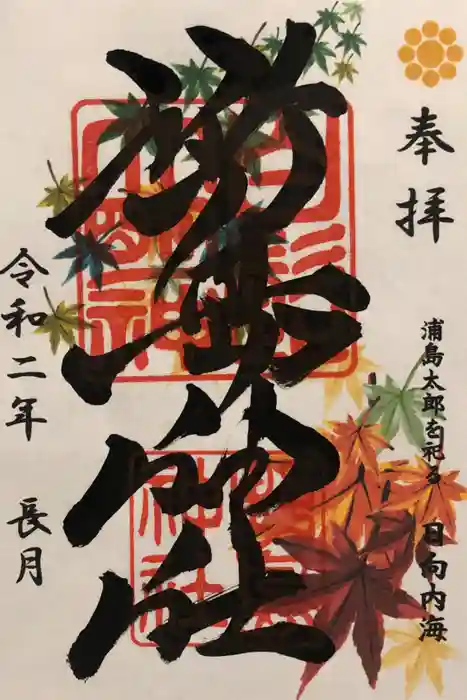 奉拝
浦島太郎を祀る 日向内海
野島神社
令和二年 長月